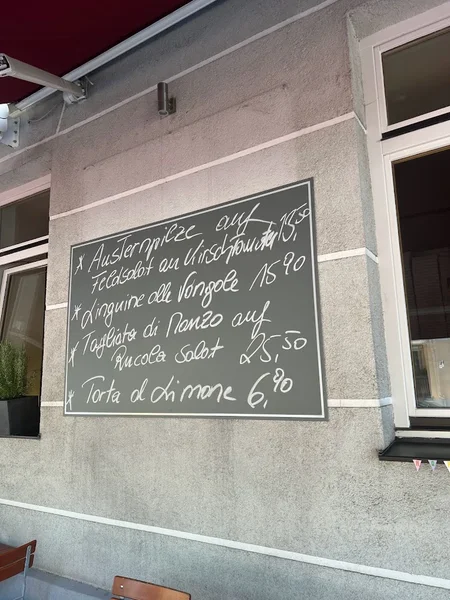 * Austernpilze auf
Feldsalat an Kirschtomate 15,50
* Linguine alle Vongole 15,90
* Tagliata di Manzo auf
Rucola Salat 25,50
* Torta al Limone 6,90